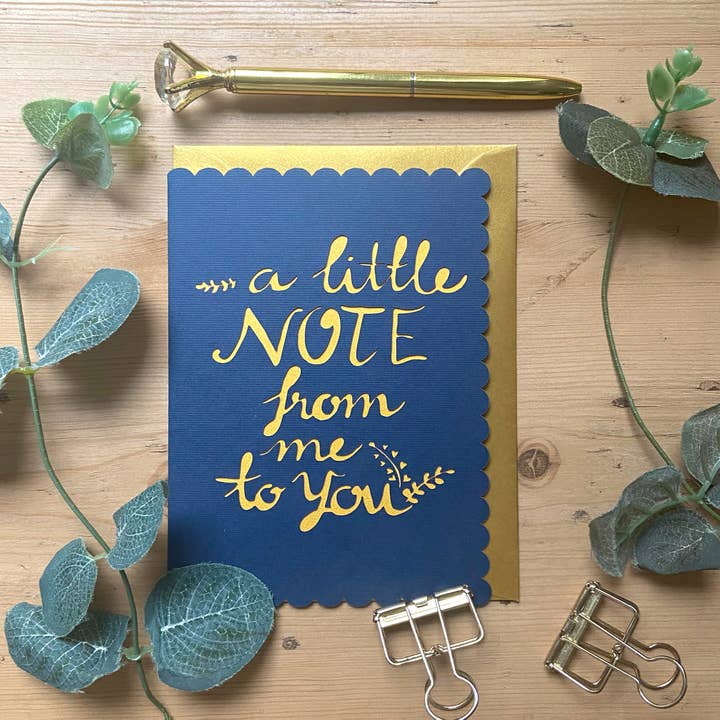 a little
NOTE
from
me
to You